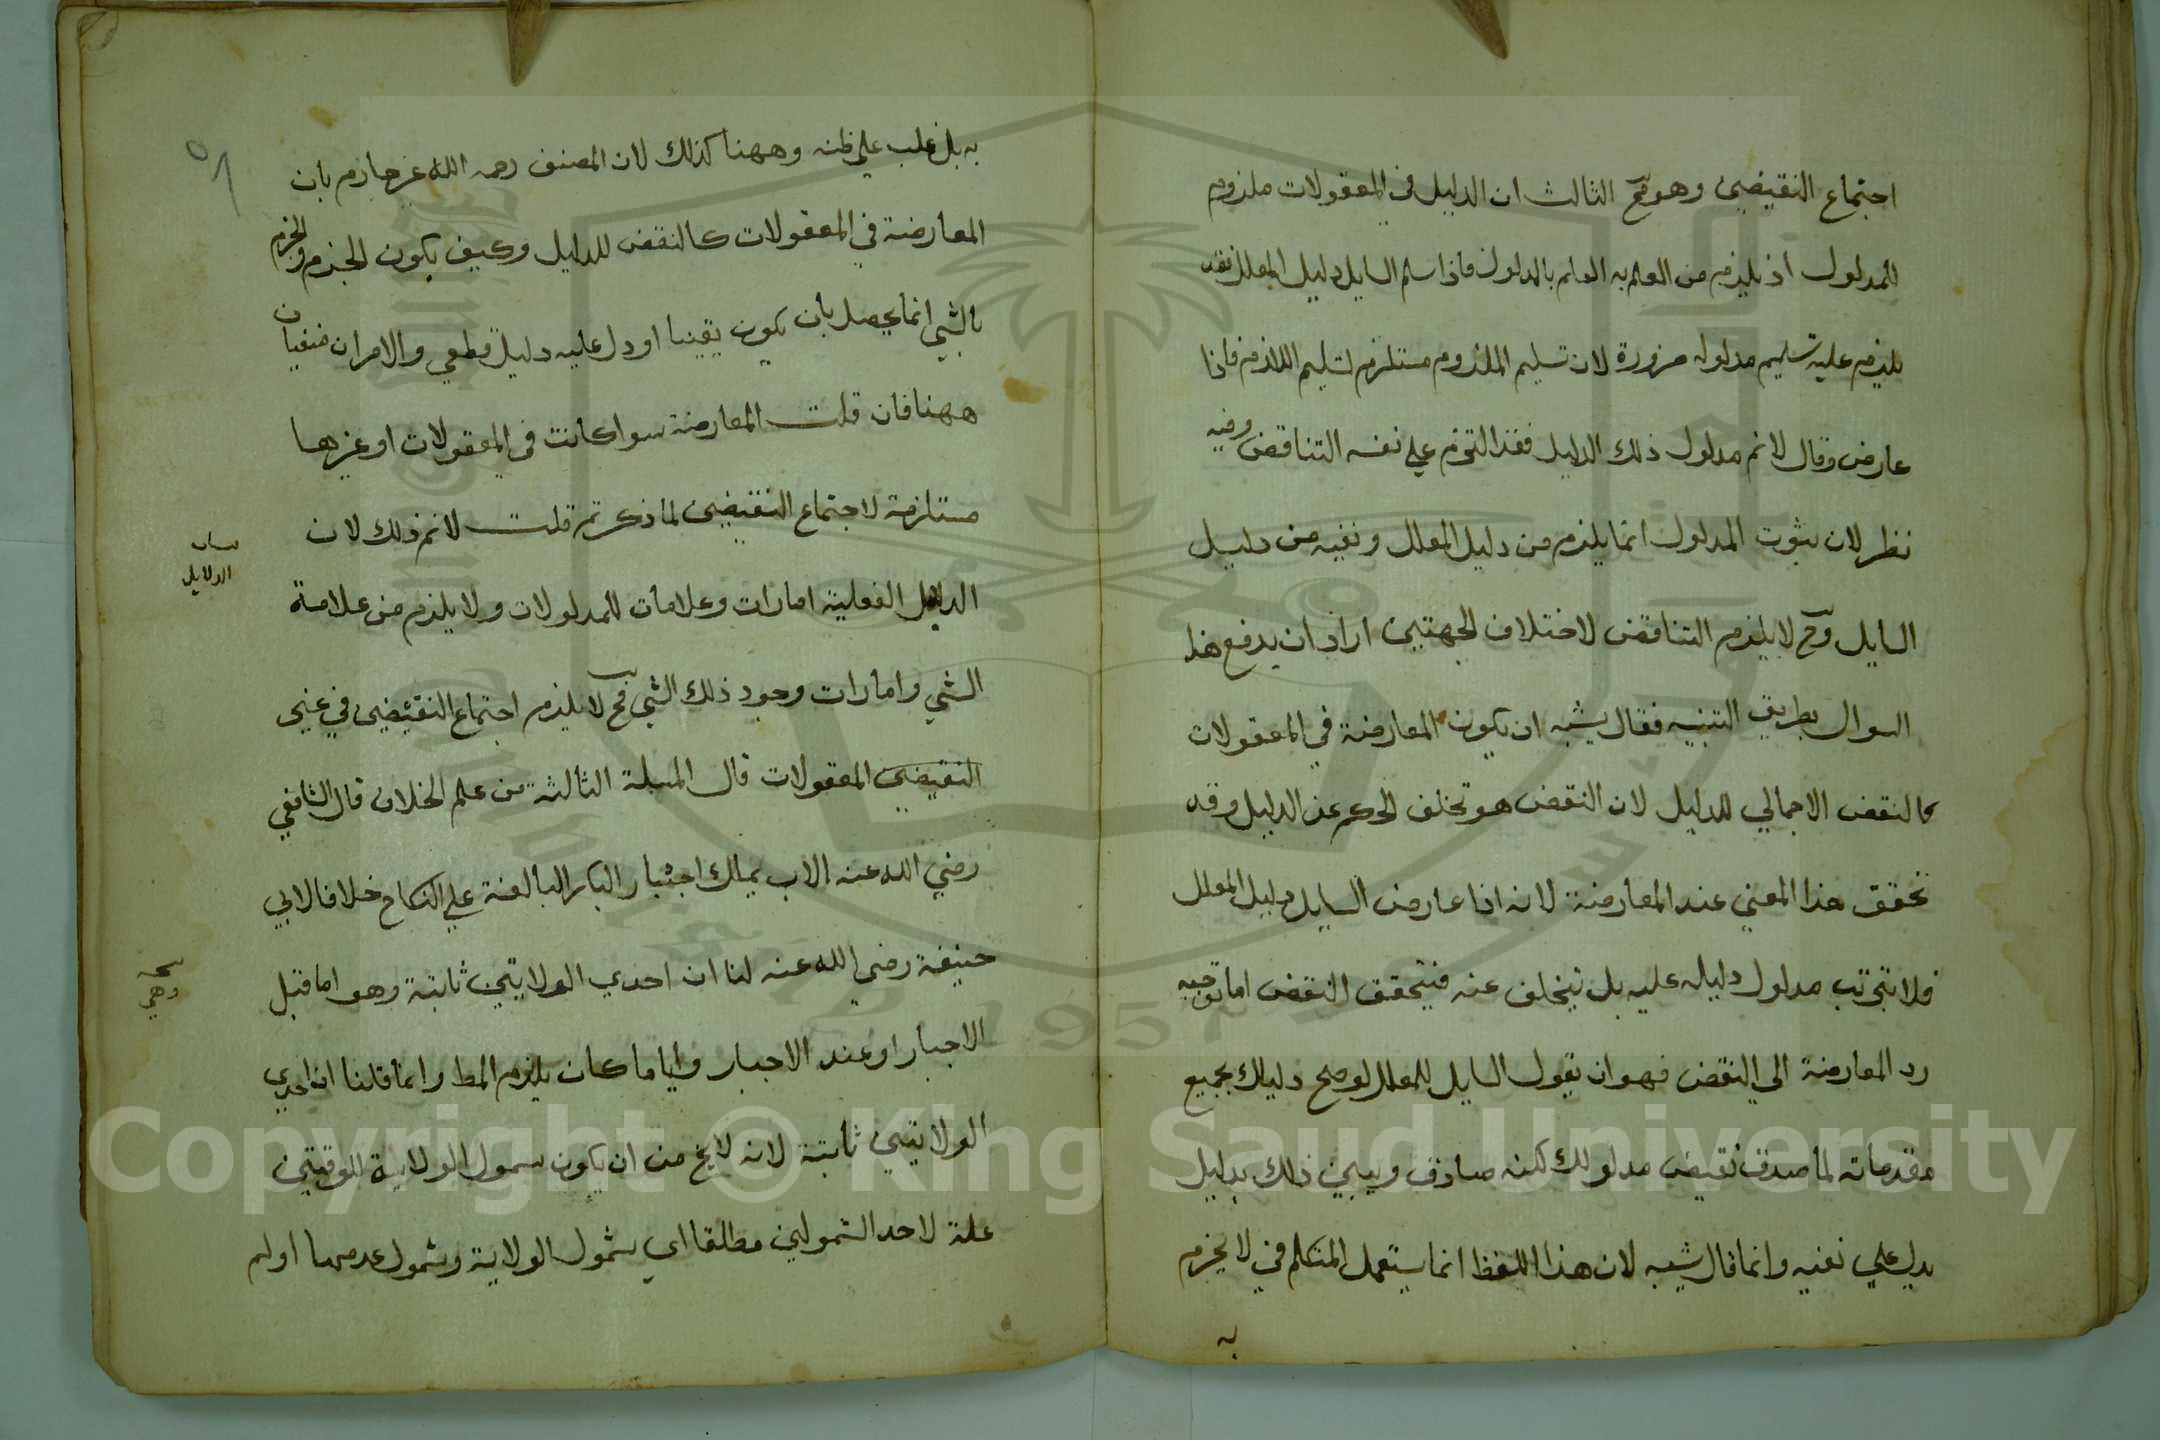 اجتماع النقيضين وهو مح الثالث ان الدليل في المعقولات ملزوم
للمدلول اذ يلزم من العلم به العلم بالمدلول فاذا سلم السايل دليل المعلل فقد
يلزم عليه تسليم مدلوله ضرورة لان تسليم الملزوم مستلزم لتسليم اللازم فاذا
عارض وقال لانم مدلول ذلك الدليل فقد التزم علي نفسه التناقض وفيه
نظر لان ثبوت المدلول انما يلزم من دليل المعلل ونفيه من دليل
السايل وح لا يلزم التناقض لاختلاف الجهتين اراد ان يدفع هذا
السوال بطريق التنبيه فقال يشبه ان يكون المعارضة في المعقولات
كالنقض الاجمالي للدليل لان النقض هو تخلف الحكم عن الدليل وقد
تحقق هذا المعني عند المعارضة لانه اذا عارض السايل دليل المعلل
فلا يترتب مدلول دليله عليه بل يتخلف عنه فيتحقق النقض اما توجيه
رد المعارضة الي النقض فهو ان يقول السايل للمعلل لو صح دليلك بجميع
مقدماته لما صدق نقيض مدلولك لكنه صادق ويبين ذلك بدليل
يدل علي نفيه وانما قال يشبه لان هذا اللفظ انما يستعمل المتكلم في لا يجزم
به
به بل غلب علي ظنه وههنا كذلك لان المصنف رحمه الله غير جازم بان
المعارضة في المعقولات كالنقض للدليل وكيف يكون الجزم والجزم
بالشي انما يحصل بان يكون يقينيا او دل عليه دليل قطعي والامران منفيان
ههنا فان قلت المعارضة سوا كانت في المعقولات او غيرها
مستلزمة لاجتماع النقيضين لما ذكرتم قلت لانم ذلك لان
الدلايل الفعلية امارات وعلامات للمدلولات ولا يلزم من علامة
الشي وامارات وجود ذلك الشي فح لا يلزم اجتماع النقيضين في غير
النقيضين المعقولات قال المسلة الثالثة من علم الخلاف قال الشافعي
رضي الله عنه الاب يملك اجبار البكر البالغة علي النكاح خلافا لابي
حنيفة رضي الله عنه لنا ان احدي الولايتين ثابتة وهو اما قبل
الاجبار او عند الاجبار وايا ما كان يلزم المط وانما قلنا ان احدي
الولايتين ثابتة لانه لا يخ من ان يكون شمول الولاية للوقتين
علة لاحد الشمولين مطلقا اي شمول الولاية وشمول عدمهما اولم
الدلايل
Copyright © King Saud University
1957